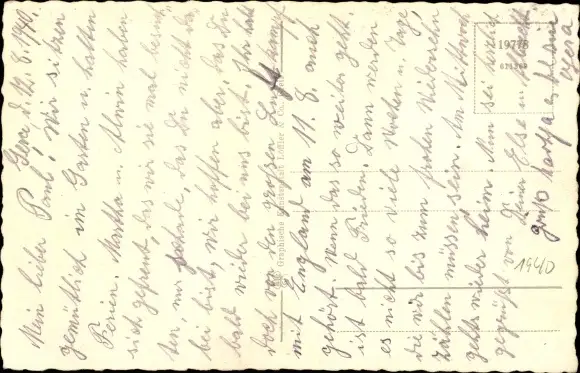 Gera, d. 12. 8. 1940.
Mein lieber Paul! Wir sitzen
gemütlich im Garten u. hatten
Ferien. Martha u. Alwin haben
sich gefreut, das wir sie mal besuch-
ten, nur schade, das Du nicht da-
bei bist, wir hoffen aber, das Du
bald wieder bei uns bist. Ihr habt
doch von den großen Luftkampf
mit England am 11. 8. auch
gehört. Wenn das so weiter geht.
ist bald Frieden. Dann werden
es nicht so viele Wochen u. Tage,
die wir bis zum frohen Wiedersehn
zählen müssen sein. Am Mittwoch
gehts wieder heim. Nun sei herzlich
gegrüßt von Deiner Else u.
Gruß Martha
Gera
1940
19778
Graphische Kunstanstalt Löffler & Co.